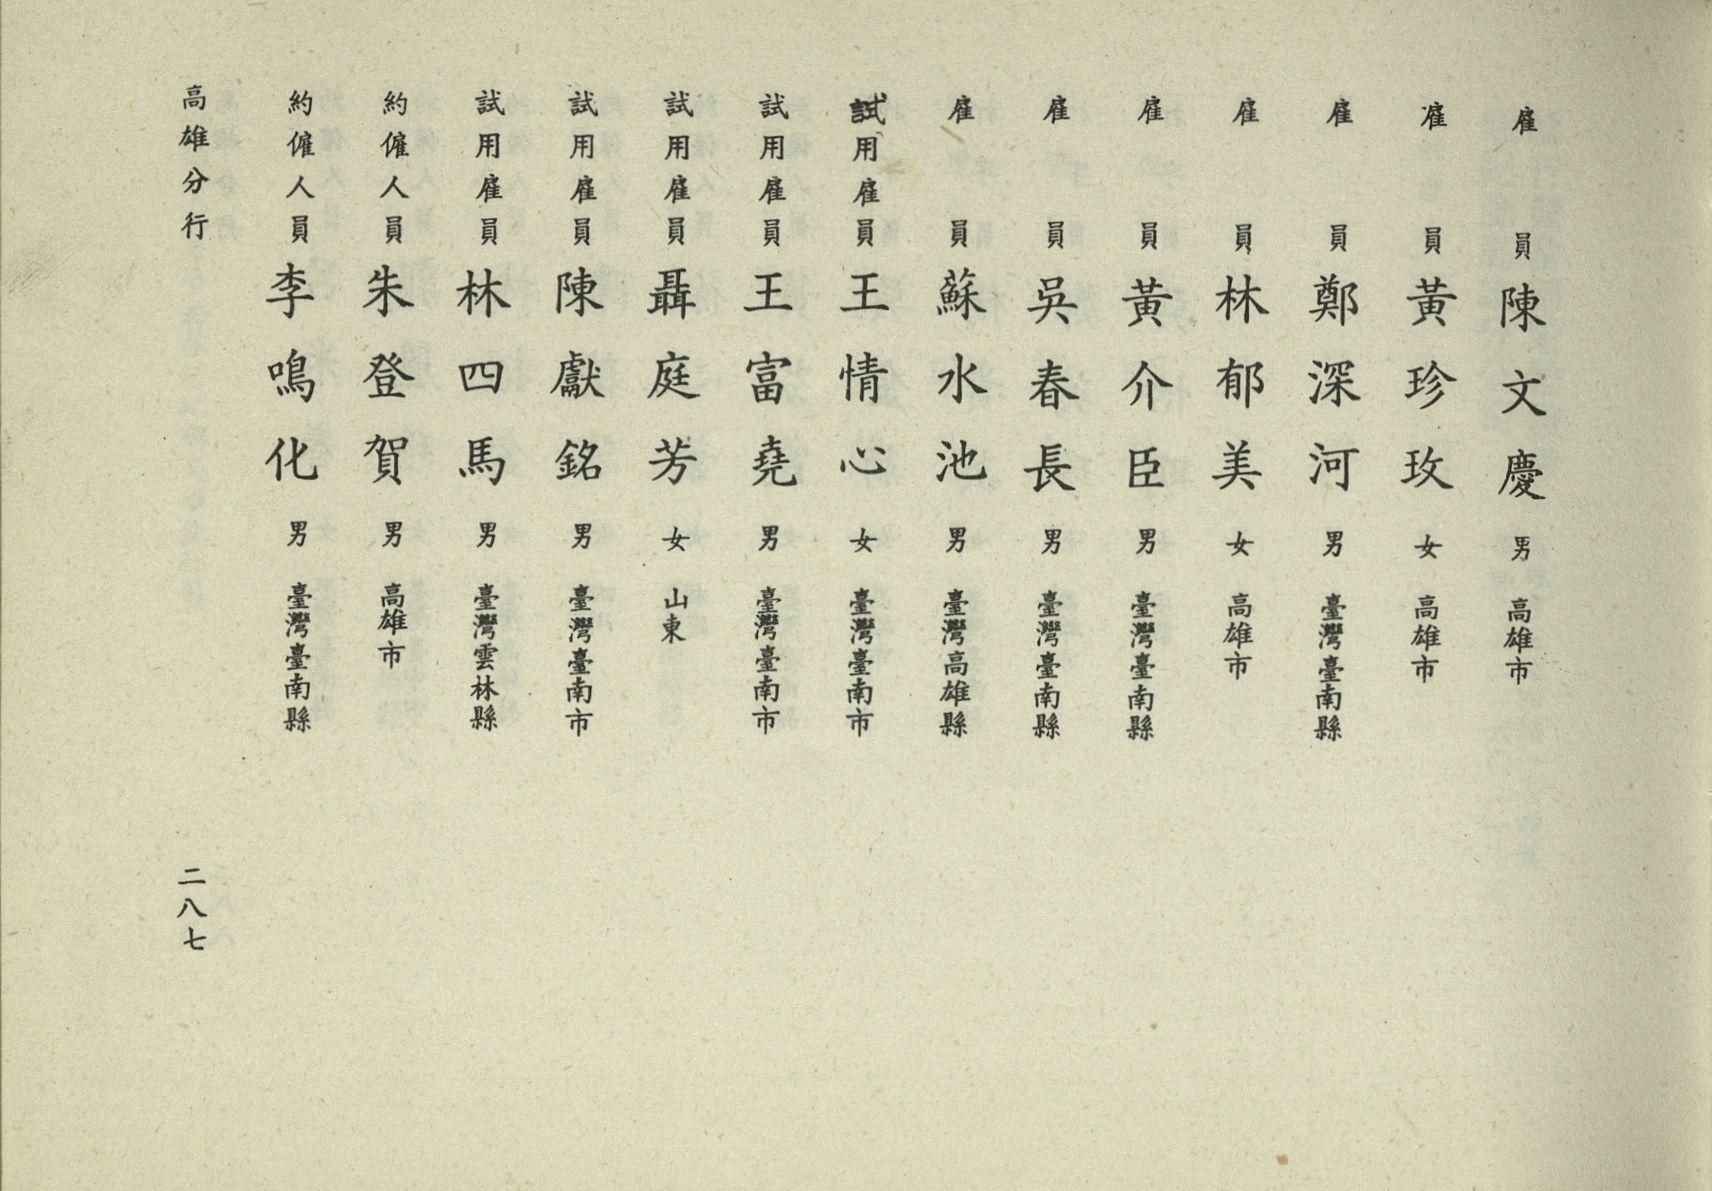 雇員 陳文慶 男 高雄市
雇員 黃珍玫 女 高雄市
雇員 鄭深河 男 臺灣臺南縣
雇員 林郁美 女 高雄市
雇員 黃介臣 男 臺灣臺南縣
雇員 吳春長 男 臺灣臺南縣
雇員 蘇水池 男 臺灣高雄縣
試用雇員 王情心 女 臺灣臺南市
試用雇員 王富堯 男 臺灣臺南市
試用雇員 聶庭芳 女 山東
試用雇員 陳獻銘 男 臺灣臺南市
試用雇員 林四馬 男 臺灣雲林縣
約僱人員 朱登賀 男 高雄市
約僱人員 李鳴化 男 臺灣臺南縣
高雄分行 二八七